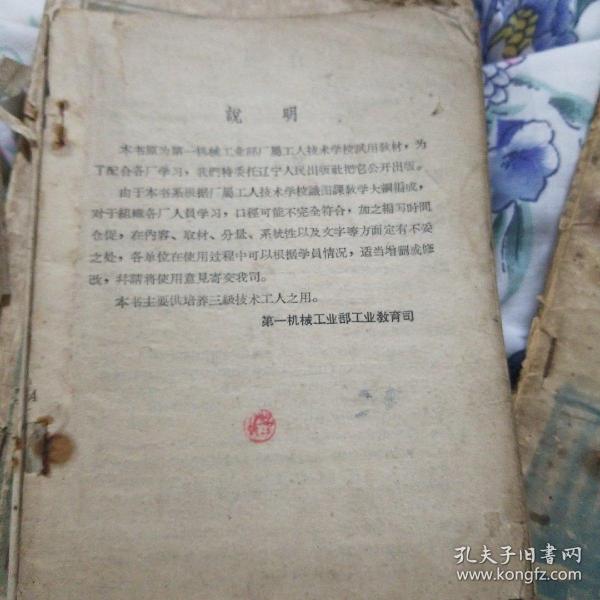 說明
本书原为第一机械工业部厂屬工人技术学校試用教材，为
了配合各厂学习，我們特委托辽宁人民出版社把它公开出版。
由于本书系根据厂屬工人技术学校識图課教学大綱編成，
对于組織各厂人員学习，口徑可能不完全符合，加之編写時間
仓促，在內容、取材、分量、系統性以及文字等方面定有不妥
之处，各单位在使用过程中可以根据学員情况，适当增删或修
改，幷請将使用意見寄交我司。
本书主要供培养三級技术工人之用。
第一机械工业部工业教育司
孔夫子旧书网
www.kongfz.com